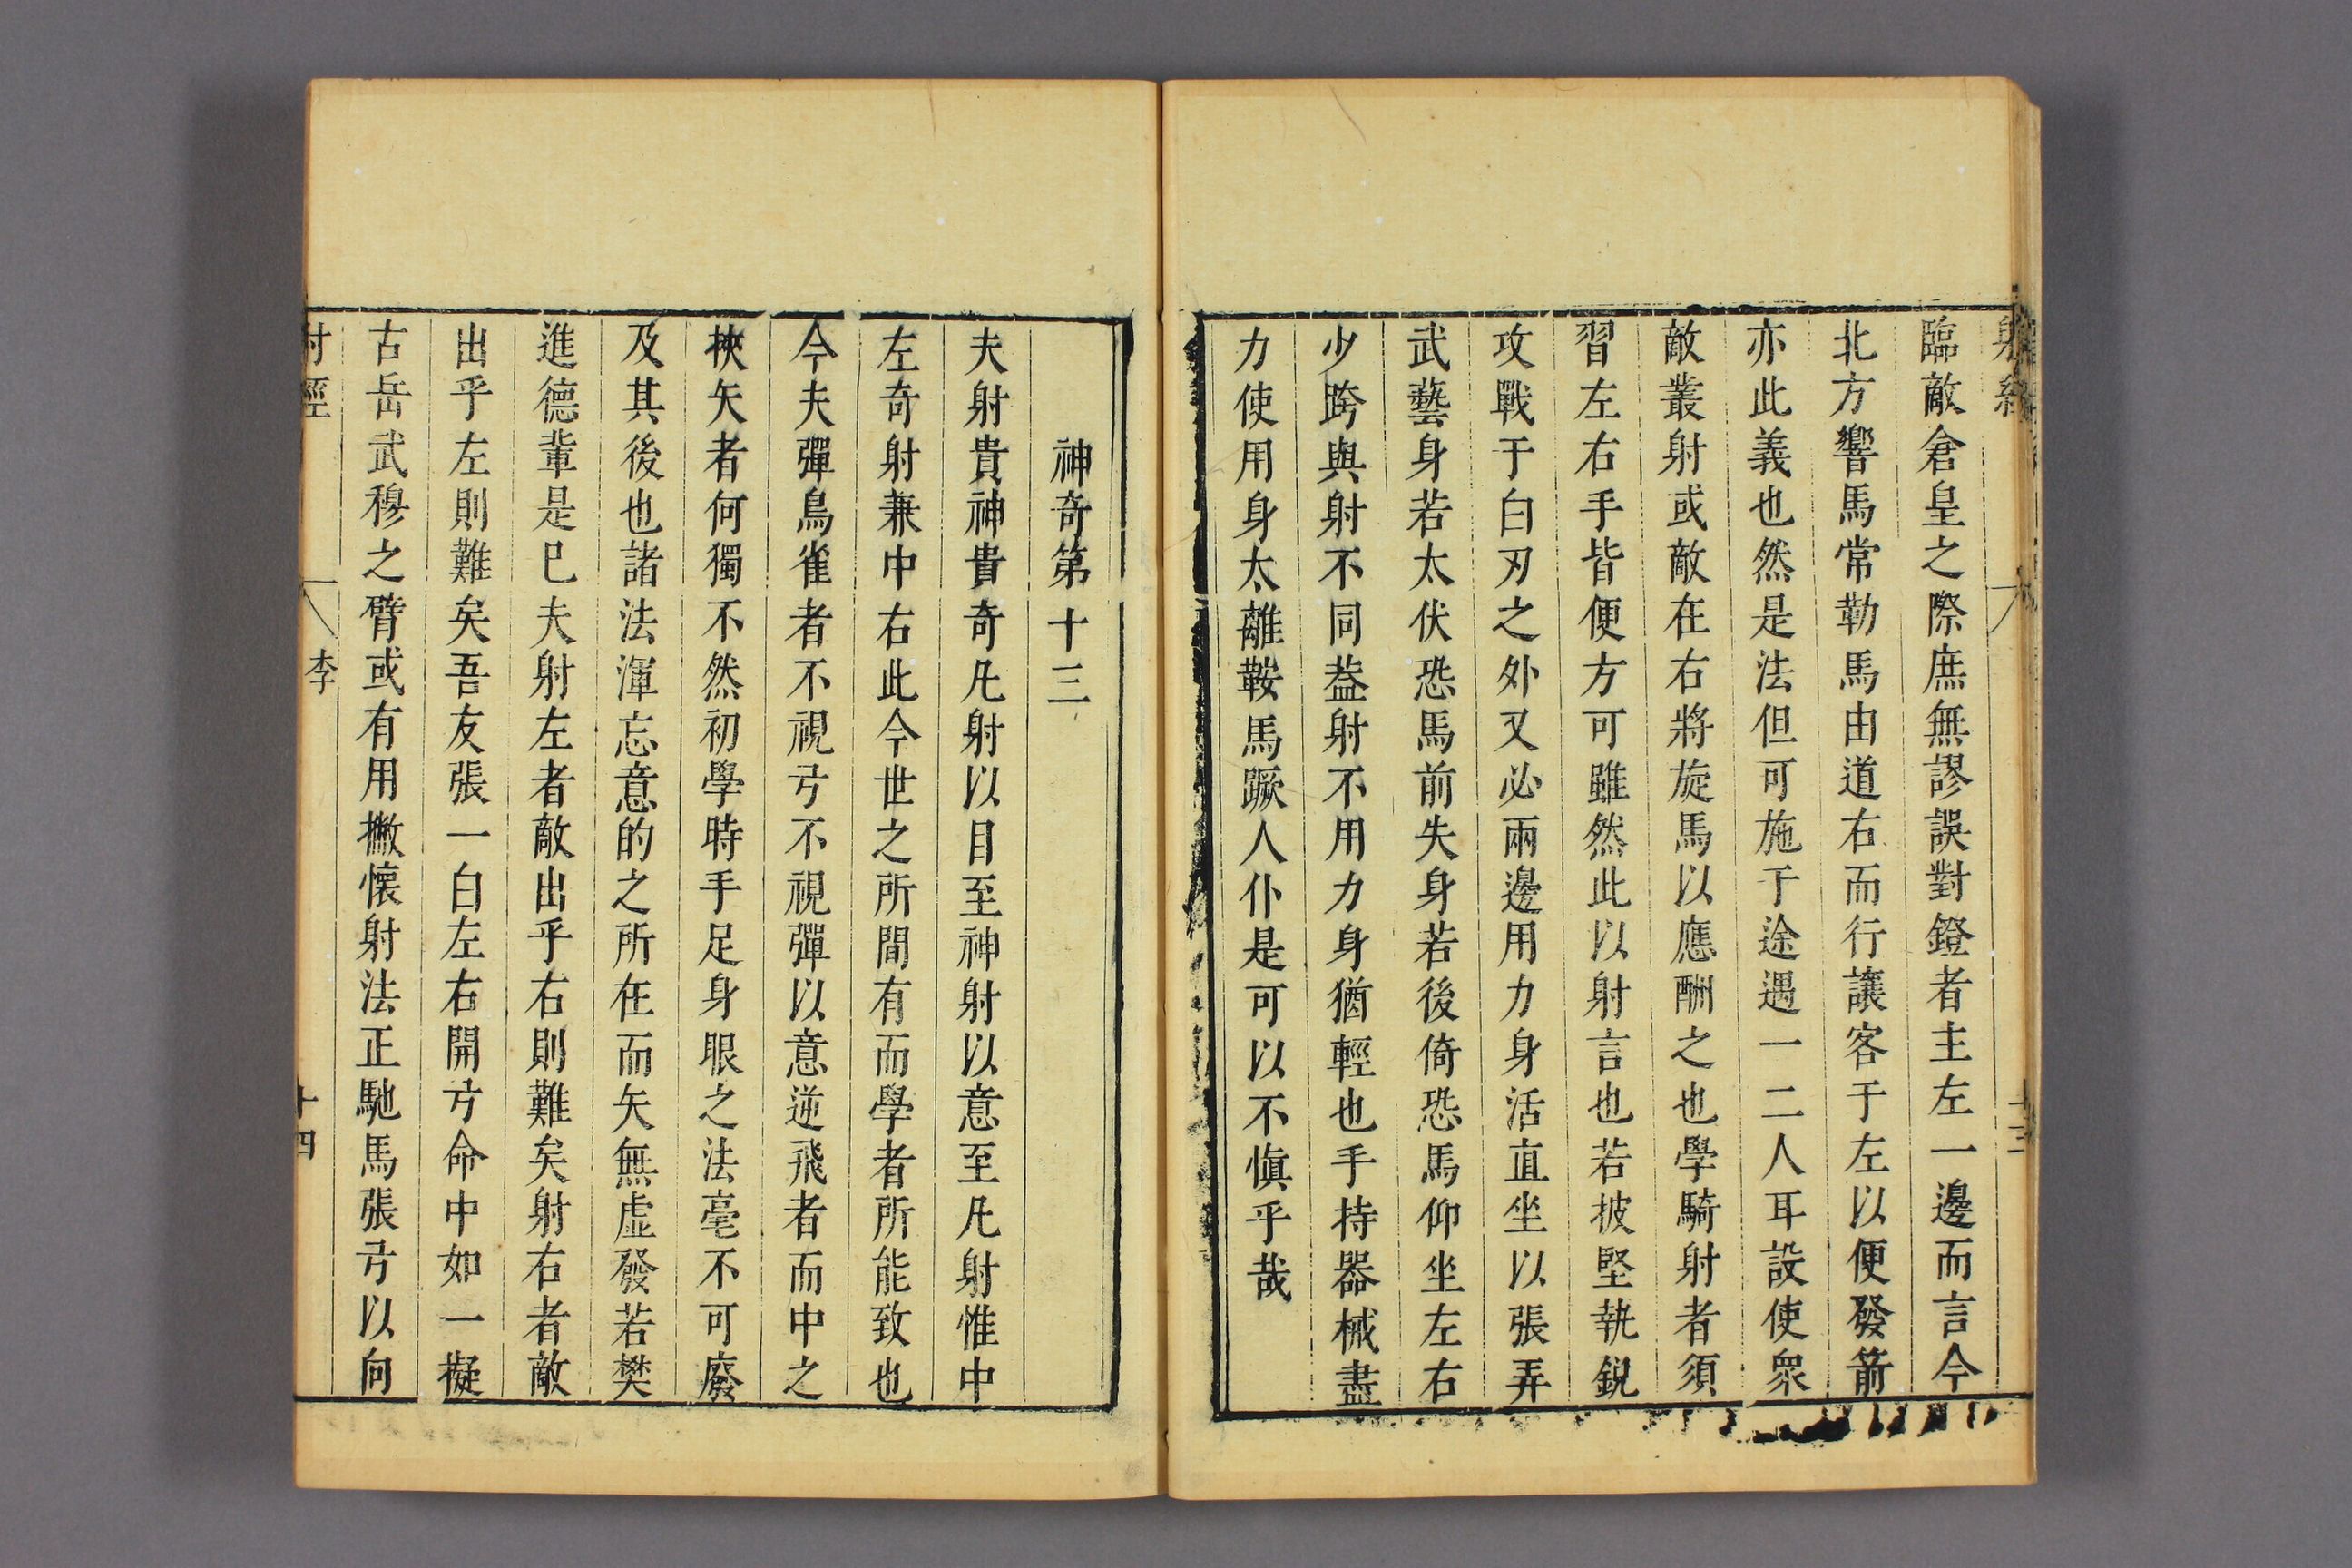 射經
十三
臨敵倉皇之際庶無謬誤對鐙者主左一邊而言今
北方響馬常勒馬由道右而行讓客于左以便發箭
亦此義也然是法但可施于途遇一二人耳設使衆
敵叢射或敵在右將旋馬以應酬之也學騎射者須
習左右手皆便方可雖然此以射言也若披堅執銳
攻戰于白刃之外又必兩邊用力身活直坐以張弄
武藝身若太伏恐馬前失身若後倚恐馬仰坐左右
少跨與射不同葢射不用力身猶輕也手持器械盡
力使用身太離鞍馬蹶人仆是可以不愼乎哉
神奇第十三
夫射貴神貴奇凡射以目至神射以意至凡射惟中
左奇射兼中右此今世之所間有而學者所能致也
今夫彈鳥雀者不視弓不視彈以意逆飛者而中之
挾矢者何獨不然初學時手足身眼之法毫不可廢
及其後也諸法渾忘意的之所在而矢無虛發若樊
進德輩是巳夫射左者敵出乎右則難矣射右者敵
出乎左則難矣吾友張一白左右開弓命中如一擬
古岳武穆之臂或有用撇懷射法正馳馬張弓以向
射經
李
十四